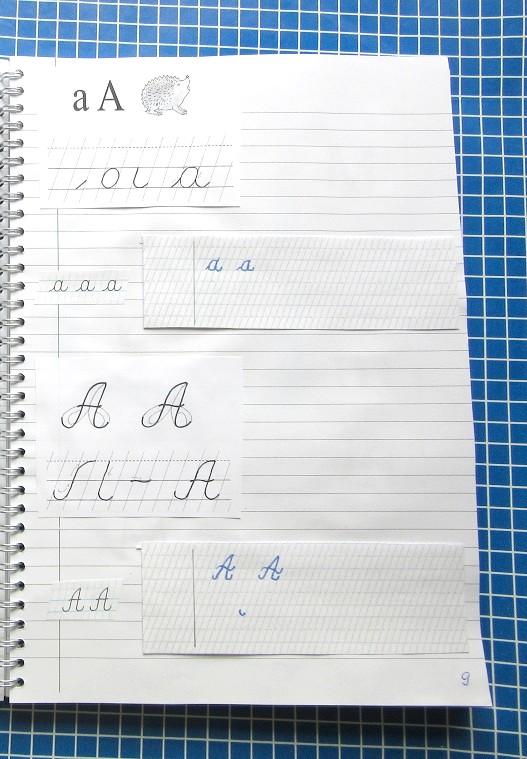 а А
о а
а а а
а а
А А
А
А А
А А
9